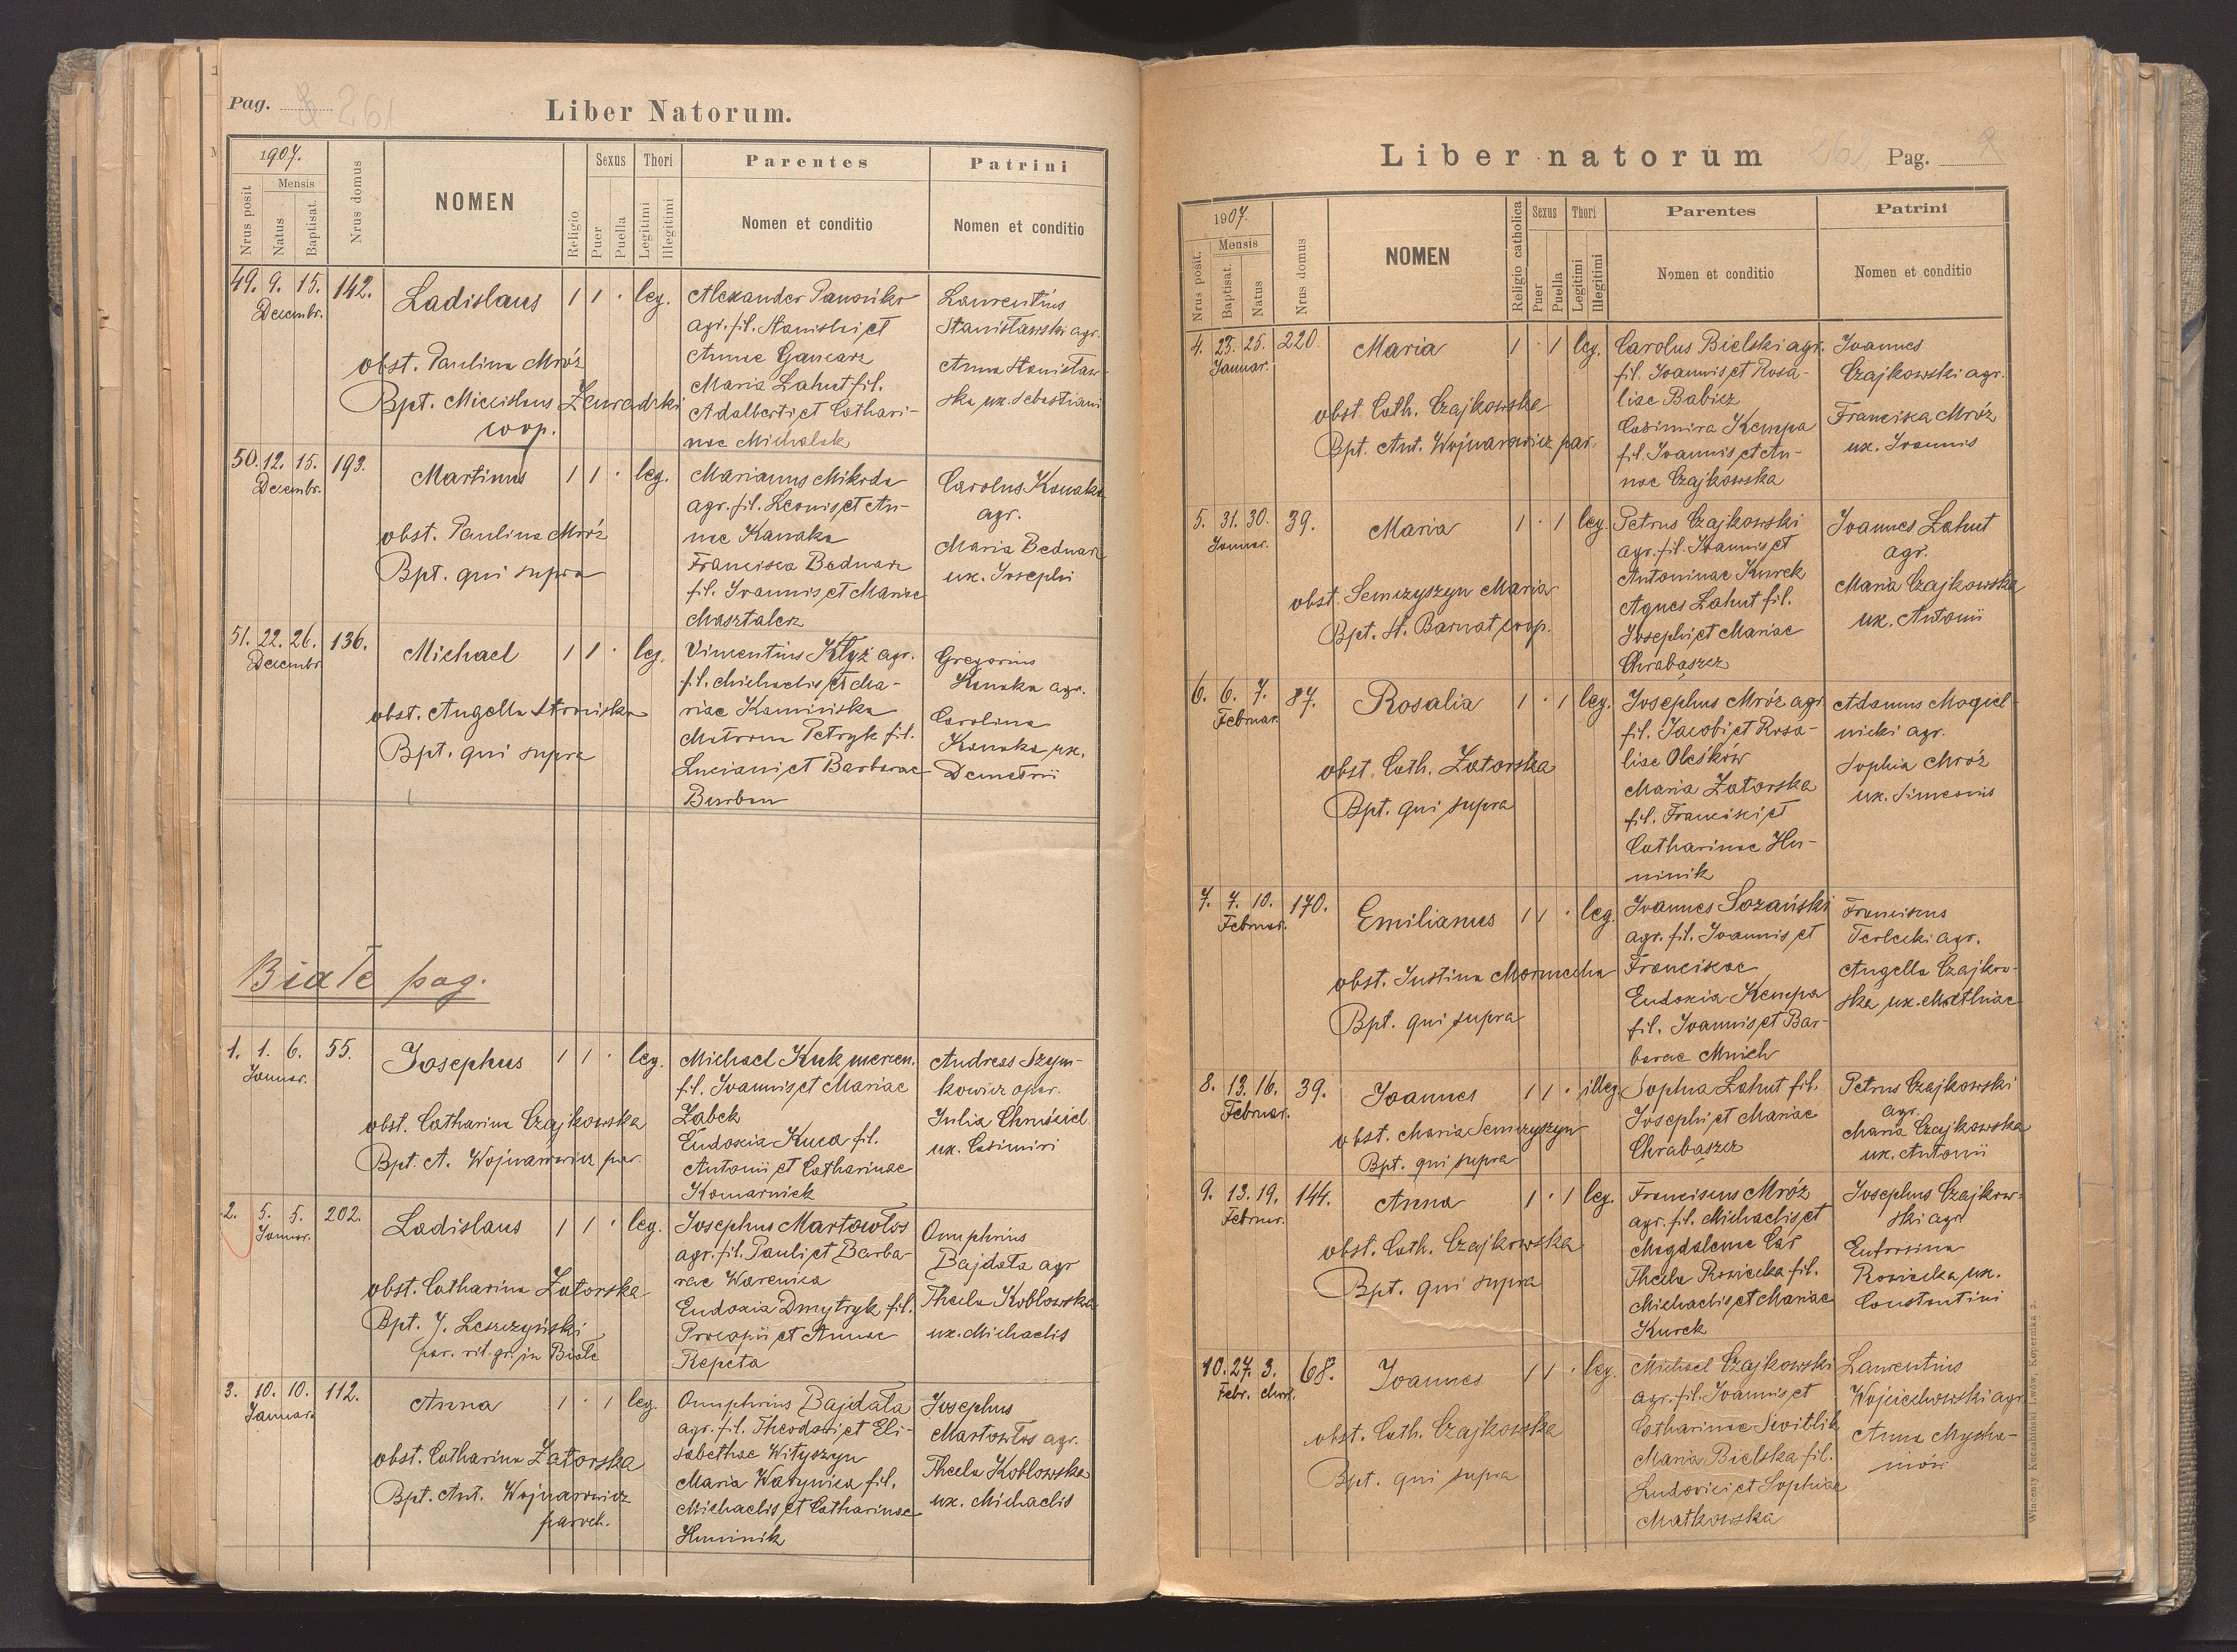 Pag. 261
Liber Natorum.
1907.
Nrus posit
Mensis
Natus
Baptisat.
Nrus domus
NOMEN
Religio
Sexus
Puer
Puella
Thori
Legitimi
Illegitimi
Parentes
Nomen et conditio
Patrini
Nomen et conditio
49. 9. 15. 142.
Decembr.
Ladislaus
1 1 · leg.
obst. Paulina Mróz
Bpt. Miecislaus Żeuradzki
coop.
Alexander Panońko
agr. fil. Stanislai et
Annae Gancarz
Maria Łahut fil.
Adalberti et Cathari-
nae Michalek
Laurentius
Stanisławski agr.
Anna Stanisław-
ska ux. Sebastiani
50. 12. 15. 193.
Decembr.
Martinus
1 1 · leg.
obst. Paulina Mróz
Bpt. qui supra
Marianus Mikoda
agr. fil. Leonis et An-
nae Kanaka
Francisca Bednarz
fil. Ioannis et Mariae
Masztalerz
Carolus Kanaka
agr.
Maria Bednarz
ux. Josephi
51. 22. 26. 136.
Decembr.
Michael
1 1 · leg.
obst. Angella Strońska
Bpt. qui supra
Vincentius Kłyż agr.
fil. Michaelis et Ma-
riae Kamińska
Matrona Petryk fil.
Luciani et Barbarae
Burban
Gregorius
Kanaka agr.
Carolina
Kanaka ux.
Demetrii
Białe pag.
1. 1. 6. 55.
Januar.
Josephus
1 1 · leg.
obst. Catharina Czajkowska
Bpt. A. Wojnarowicz par.
Michael Kuk mercen.
fil. Ioannis et Mariae
Żabek
Eudoxia Kuca fil.
Antonii et Catharinae
Komarnick
Andreas Szym-
kowicz opar.
Julia Chruściel
ux. Casimiri
2. 5. 5. 202.
Januar.
Ladislaus
1 1 · leg.
obst. Catharina Zatorska
Bpt. J. Leszczyński
par. rit. gr. in Białe
Josephus Martowłos
agr. fil. Pauli et Barba-
rae Warenica
Eudoxia Dmytryk fil.
Procopii et Annae
Repeta
Onuphrius
Bajdała agr
Thecla Kobłowska
ux. Michaelis
3. 10. 10. 112.
Januar.
Anna
1 · 1 leg.
obst. Catharina Zatorska
Bpt. Ant. Wojnarowicz
paroch.
Onuphrius Bajdała
agr. fil. Theodori et Eli-
sabethae Wityszyn
Maria Watynica fil.
Michaelis et Catharinae
Huminik
Josephus
Martowłos agr.
Thecla Kobłowska
ux. Michaelis
Liber natorum
262
Pag. 2
1907.
Nrus posit.
Mensis
Baptisat.
Natus
Nrus domus
NOMEN
Religio catholica
Sexus
Puer
Puella
Thori
Legitimi
Illegitimi
Parentes
Nomen et conditio
Patrini
Nomen et conditio
4. 23. 25. 220.
Januar.
Maria
1 · 1 leg.
obst. Cath. Czajkowska
Bpt. Ant. Wojnarowicz par.
Carolus Bielski agr.
fil. Ioannis et Rosa-
liae Babicz
Casimira Kempa
fil. Ioannis et An-
nae Czajkowska
Ioannes
Czajkowski agr.
Francisca Mróz
ux. Ioannis
5. 31. 30. 39.
Januar.
Maria
1 · 1 leg.
obst. Semczyszyn Maria
Bpt. St. Barnat coop.
Petrus Czajkowski
agr. fil. Ioannis et
Antoninae Kurek
Agnes Łahut fil.
Josephi et Mariae
Chrabąszcz
Ioannes Łahut
agr.
Maria Czajkowska
ux. Antonii
6. 6. 7. 87.
Februar.
Rosalia
1 · 1 leg.
obst. Cath. Zatorska
Bpt. qui supra
Josephus Mróz agr.
fil. Jacobi et Rosa-
liae Oleśków
Maria Zatorska
fil. Francisci et
Catharinae Hu-
minik
Adamus Mogiel-
nicki agr.
Sophia Mróz
ux. Simeonis
7. 7. 10. 170.
Februar.
Emilianus
1 1 · leg.
obst. Justina Marmecha
Bpt. qui supra
Ioannes Sozański
agr. fil. Ioannis et
Franciscae
Eudoxia Kempa
fil. Ioannis et Bar-
barae Mnich
Franciscus
Terlecki agr.
Angella Czajkow-
ska ux. Mathiae
8. 13. 16. 39.
Februar.
Ioannes
1 1 · illeg.
obst. Maria Semczyszyn
Bpt. qui supra
Sophia Łahut fil.
Josephi et Mariae
Chrabąszcz
Petrus Czajkowski
agr.
Maria Czajkowska
ux. Antonii
9. 13. 19. 144.
Februar.
Anna
1 · 1 leg.
obst. Cath. Czajkowska
Bpt. qui supra
Franciscus Mróz
agr. fil. Michaelis et
Magdalenae Car
Thecla Rosiecka fil.
Michaelis et Mariae
Kurek
Josephus Czajkow-
ski agr.
Eufrosina
Rosiecka ux.
Constantini
10. 27. 3. 68.
Febr. Mart.
Ioannes
1 1 · leg.
obst. Cath. Czajkowska
Bpt. qui supra
Michael Czajkowski
agr. fil. Ioannis et
Catharinae Switlik
Maria Bielska fil.
Ludovici et Sophiae
Matkowska
Laurentius
Wojciechowski agr.
Anna Mysha-
niów
Wincenty Kuczabiński Lwów, Kopernika 2.